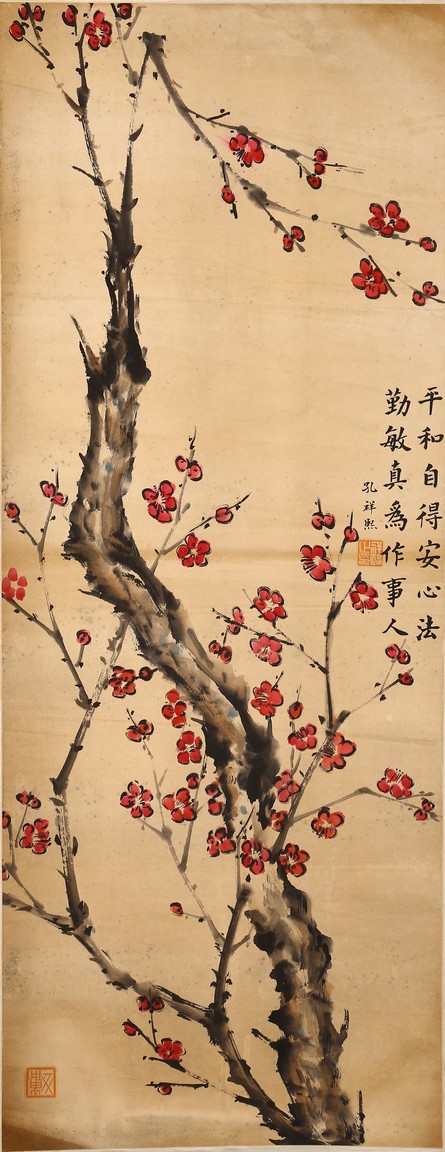 平和自得安心法
勤敏真爲作事人
孔祥熙